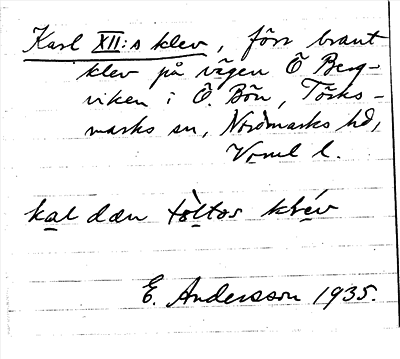 Karl XII:s klev, förr brant
klev på vägen Ö Berg-
viken i Ö. Bön, Tösks-
marks sn, Nordmarks hd,
Vrml l.
kal dæn tòltos klév
E. Andersson 1935.